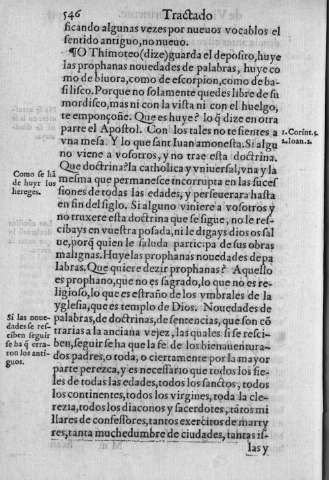 546 Tractado
ficando algunas vezes por nueuos vocablos el
sentido antiguo, no nueuo.
¶O Thimoteo (dize) guarda el deposito, huye
las prophanas nouedades de palabras, huye co
mo de biuora, como de escorpion, como de ba-
silisco. Porque no solamente quedes libre de su
mordisco, mas ni con la vista ni con el huelgo,
te emponçoñe. Que es huye? lo q̃ dize en otra
parte el Apostol. Con los tales no te sientes a
vna mesa. Y lo que sant Iuan amonesta. Si algu
no viene a vosotros, y no trae esta doctrina.
Que doctrina? la catholica y vniuersal, vna y la
mesma que permanesce incorrupta en las suces
siones de todas las edades, y perseuerara hasta
en fin del siglo. Si alguno viniere a vosotros y
no truxere esta doctrina que se sigue, no le res-
cibays en vuestra posada, ni le digays dios os sal
ue, porq̃ quien le saluda participa de sus obras
malignas. Huye las prophanas nouedades de pa
labras. Que quiere dezir prophanas? Aquello
es prophano, que no es sagrado, lo que no es re-
ligioso, lo que es estraño de los vmbrales de la
yglesia, que es templo de Dios. Nouedades de
palabras, de doctrinas, de sentencias, que son cõ
trarias a la anciana vejez, las quales si se resci-
ben, seguir se ha que la fe de los bienauentura-
dos padres, o toda, o ciertamente por la mayor
parte perezca, y es necessario que todos los fie-
les de todas las edades, todos los sanctos, todos
los continentes, todos los virgines, toda la cle-
rezia, todos los diaconos y sacerdotes, tãtos mi
llares de confessores, tantos exercitos de marty
res, tanta muchedumbre de ciudades, tantas is-
las y
1. Corint. 5.
2. Ioan. 1.
Como se hã
de huyr los
hereges.
Si las noue-
dades se res-
ciben seguir
se ha q̃ erra-
ron los anti-
guos.